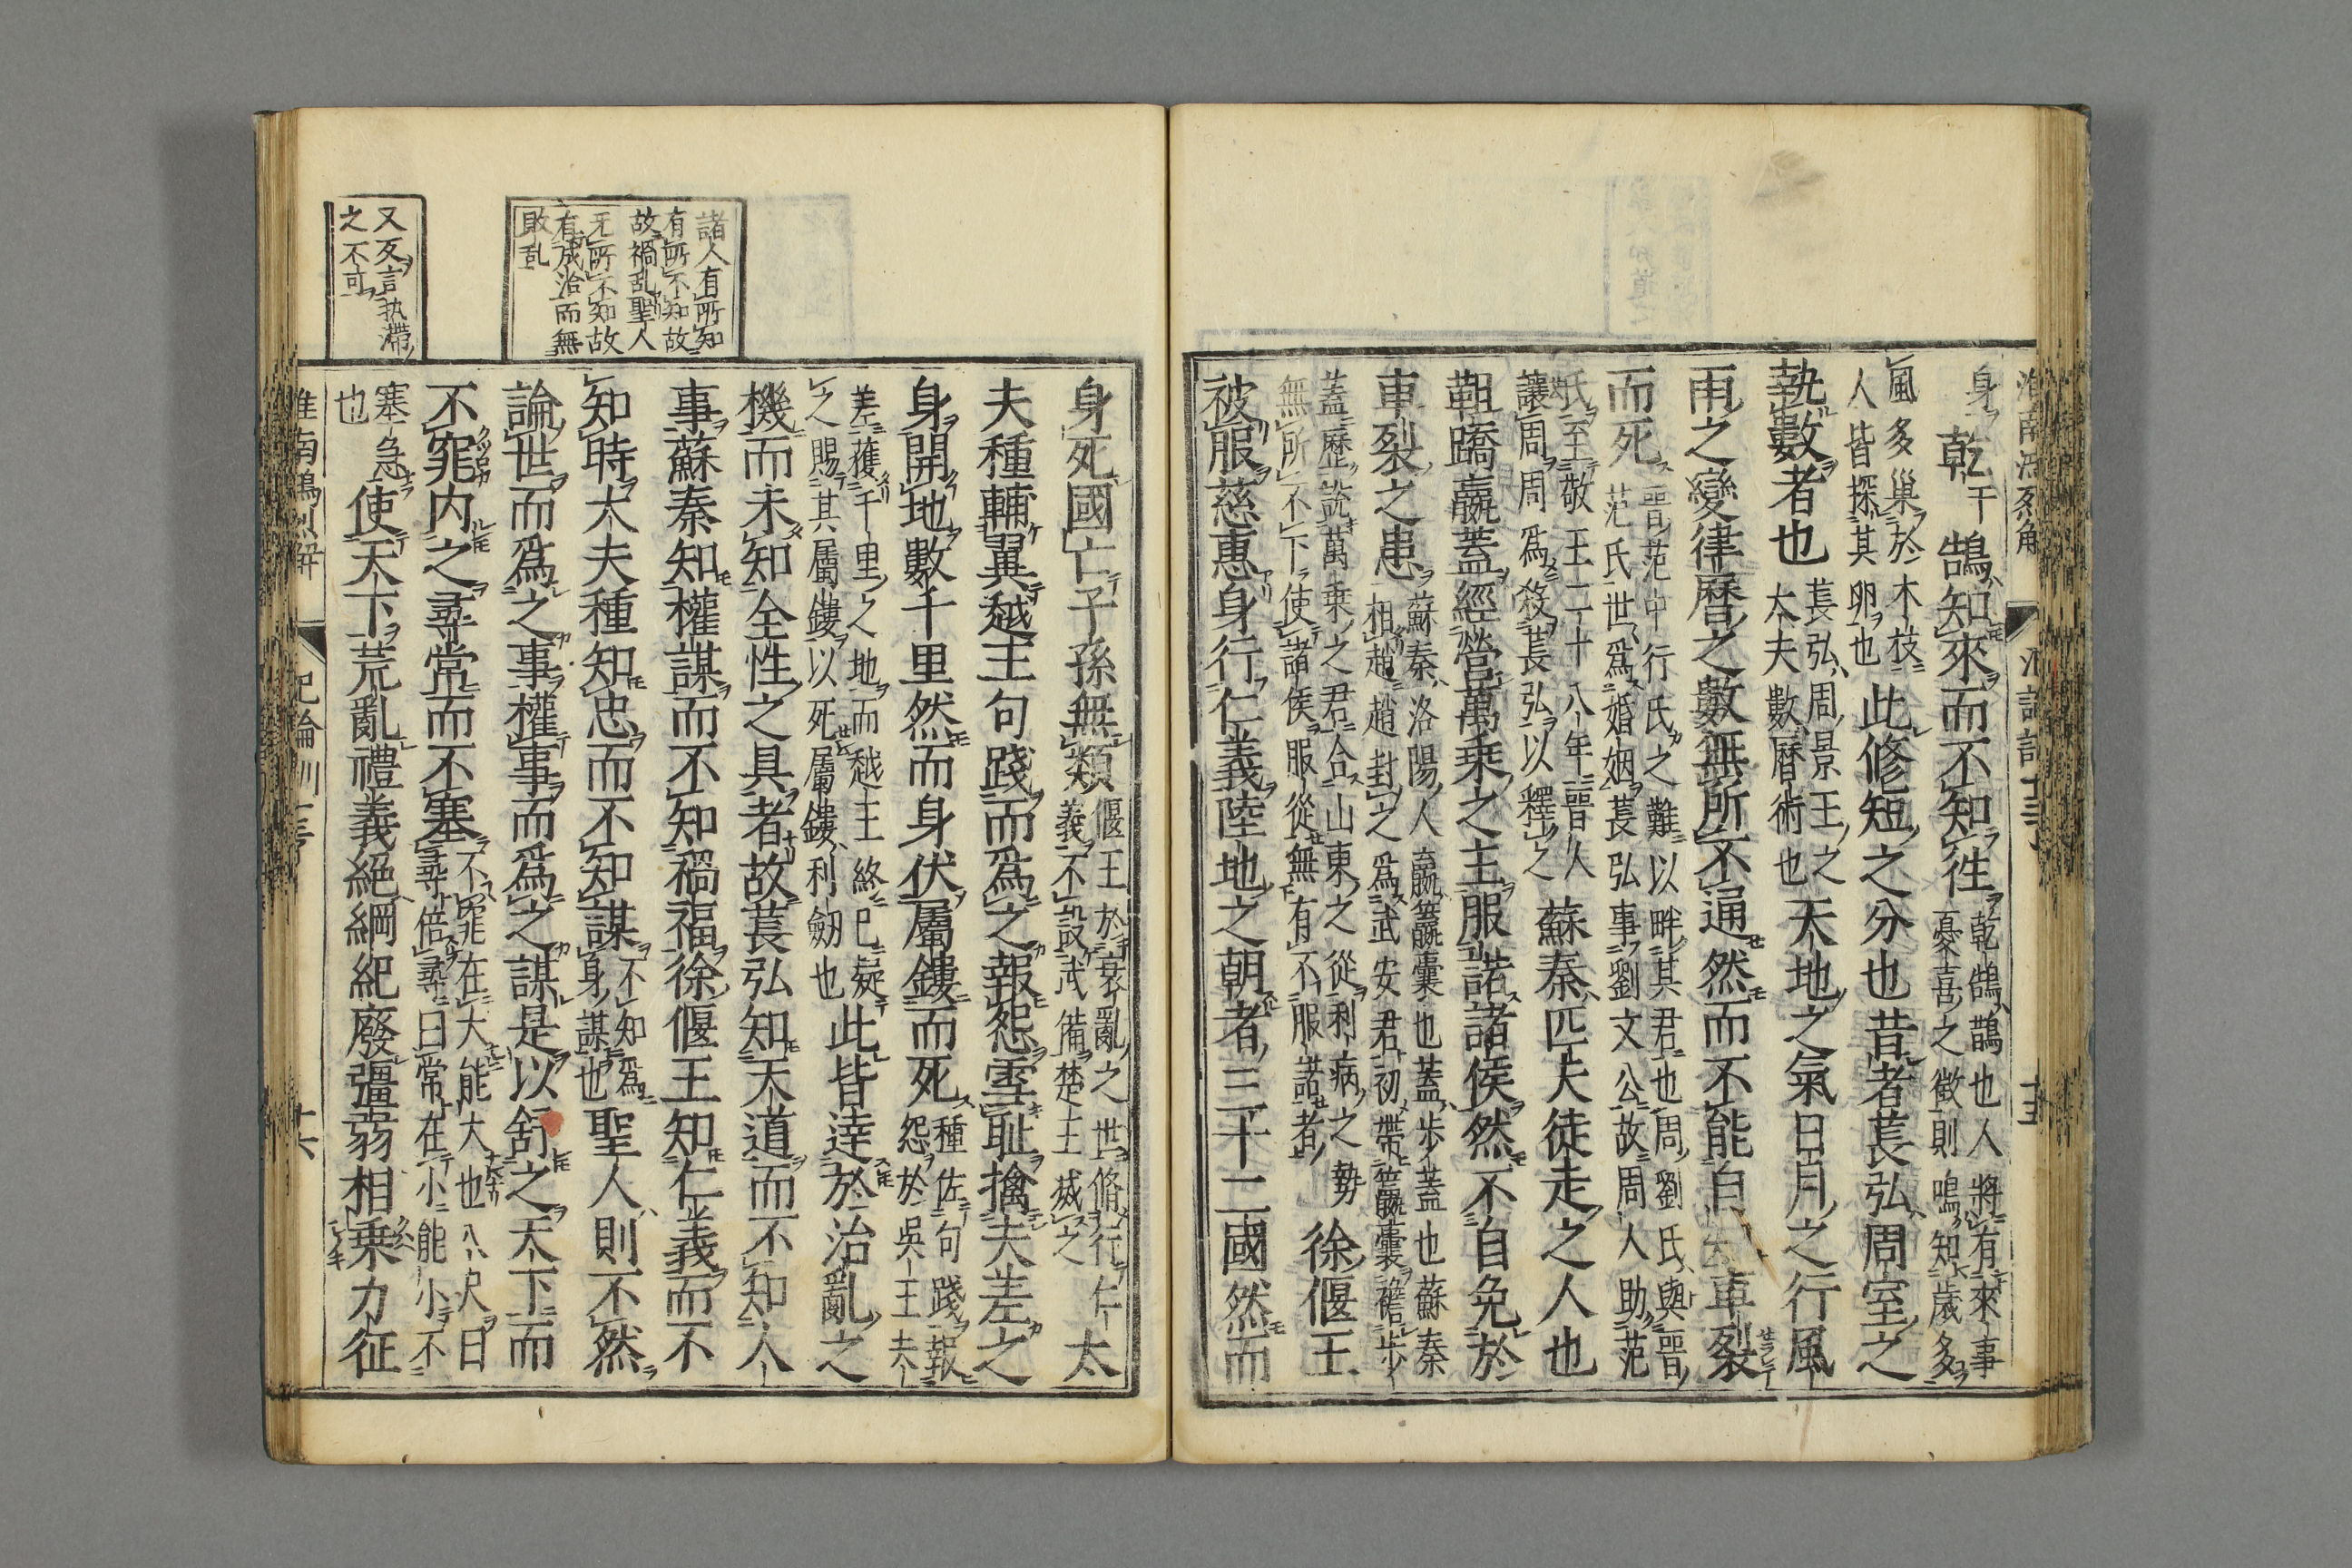 身乾干鵠知來而不知徃乾鵠鵲也人將有來事憂喜之徵則鳴知歲多
風多巢於木枝人皆探其卵也此修短之分也昔者萇弘周室之
執數者也萇弘周景王之太夫數曆術也天地之氣日月之行風
雨之變律曆之數無所不通然而不能自車裂
而死晋范中行氏之難以畔其君也周劉氏與晋范氏世爲婚姻萇弘事劉文公故周人助范
氏至敬王二十八年晋人讓周周爲殺萇弘以釋之蘇秦匹夫徒走之人也
靻蹻嬴蓋經營萬乗之主服諾諸侯然不自免於
車裂之患蘇秦洛陽人嬴籝囊也蓋步蓋也蘇秦相趙趙封之爲武安君初帶籝囊襜步
蓋歷說萬乗之君合山東之從利病之勢無所不下使諸侯服從無有不服諾者徐偃王
被服慈惠身行仁義陸地之朝者三十二國然而
諸人有所知
有所不知故
故禍乱聖人
无所不知故
有成治而無
敗乱
又反言执滯
之不可
身死國亡子孫無類偃王於衰亂之世脩行仁義不設武備楚王滅之太
夫種輔翼越王句踐而爲之報怨雪耻擒夫差之
身開地數千里然而身伏屬鏤而死種佐句踐報怨於吳王夫
差獲千里之地而越王終已疑之賜其屬鏤以死屬鏤利劒也此皆逹於治亂之
機而未知全性之具者故萇弘知天道而不知人
事蘇秦知權謀而不知禍福徐偃王知仁義而不
知時大夫種知忠而不知謀不知爲身謀也聖人則不然
論世而爲之事權事而爲之謀是以舒之天下而
不窕内之尋常而不塞不窕在大能大也八尺曰尋倍尋曰常在小能小不
塞急也使天下荒亂禮義絕綱紀廢彊弱相乗力征